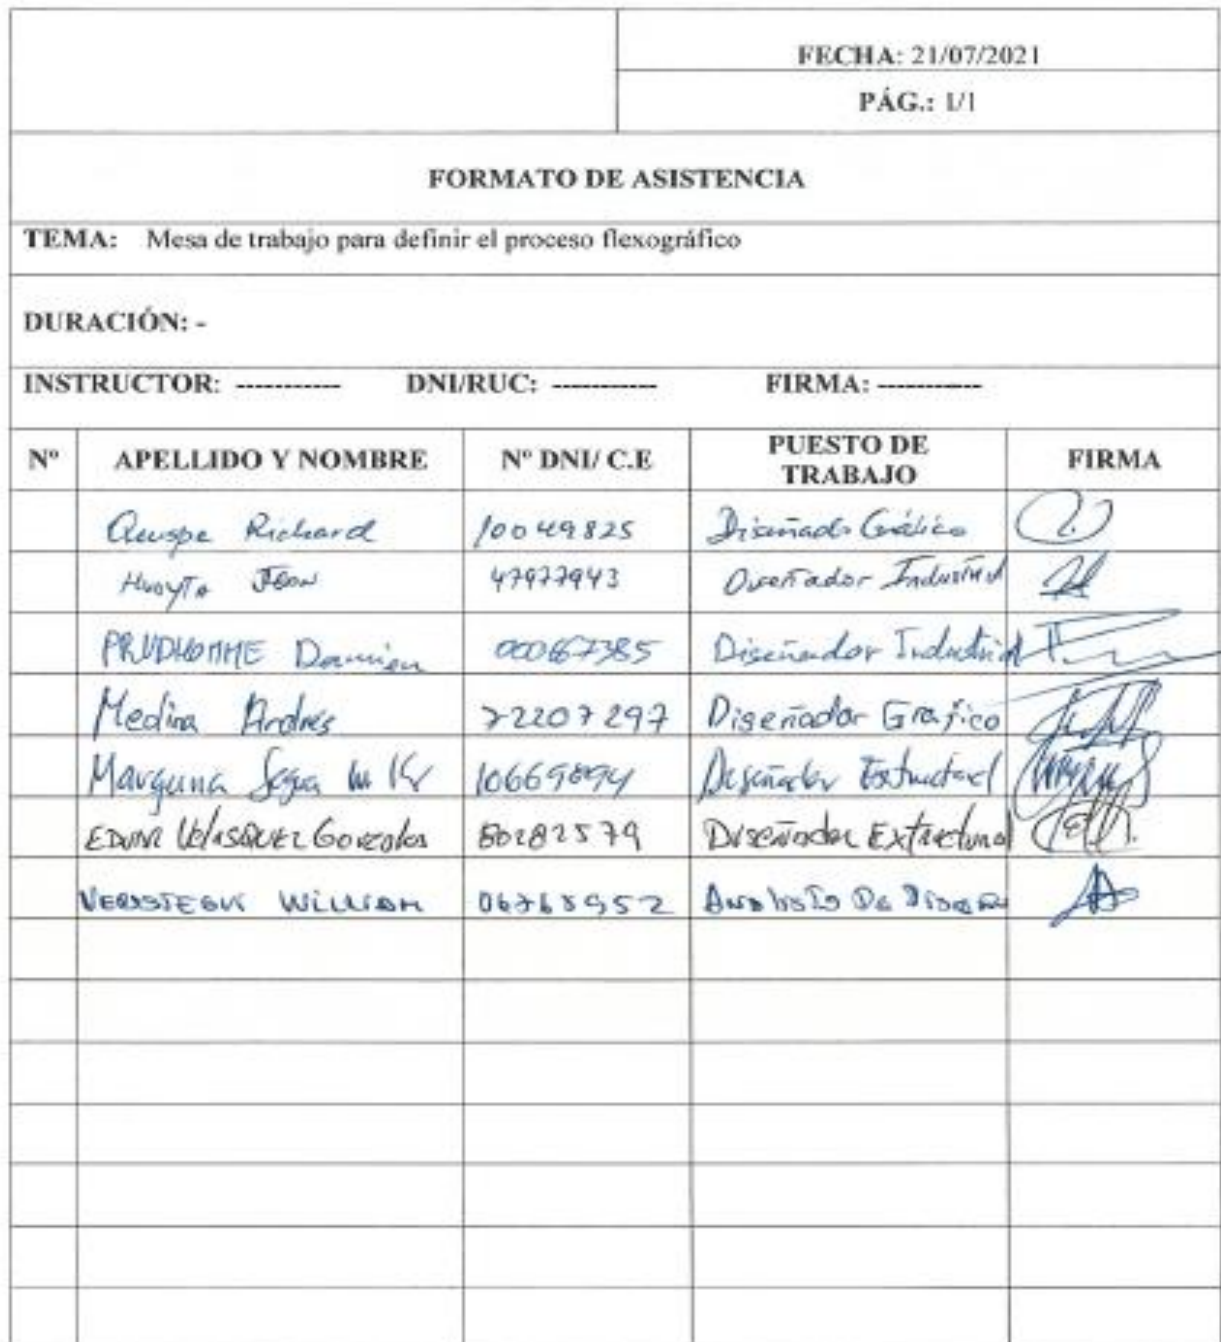 FECHA: 21/07/2021
PÁG.: 1/1
FORMATO DE ASISTENCIA
TEMA: Mesa de trabajo para definir el proceso flexográfico
DURACIÓN: -
INSTRUCTOR: ----------- DNI/RUC: ----------- FIRMA: -----------
Nº APELLIDO Y NOMBRE Nº DNI/ C.E PUESTO DE TRABAJO FIRMA
Quispe Richard 10049825 Diseñado Gráfico
Huayta Jean 47977943 Diseñador Industrial
PRUDHOMME Damien 000667385 Diseñador Industrial
Medina Andres 72207297 Diseñador Grafico
Diseñador Estructural
VELASQUEZ Gonzales 80282579 Diseñador Extructural
VERASTEGUI WILLIAM Analista De Diseño